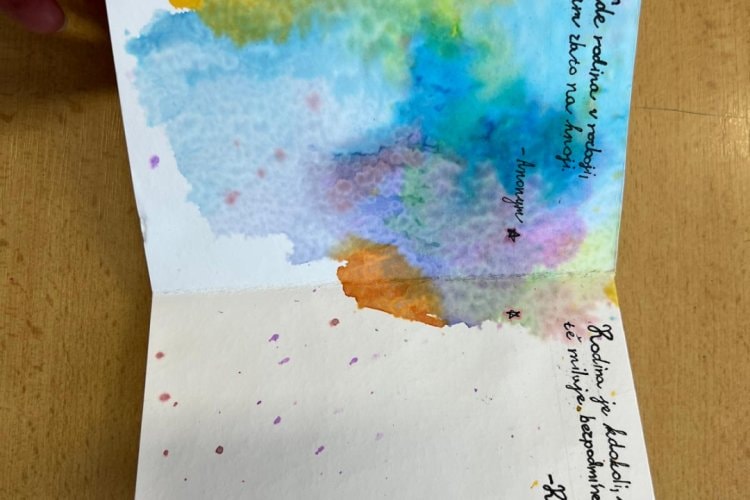 Kde rodina v rozbroji,
am zlato na hnoji.
-Anonym
Rodina je kdokoli,
tě miluje bezpodmíne
-K